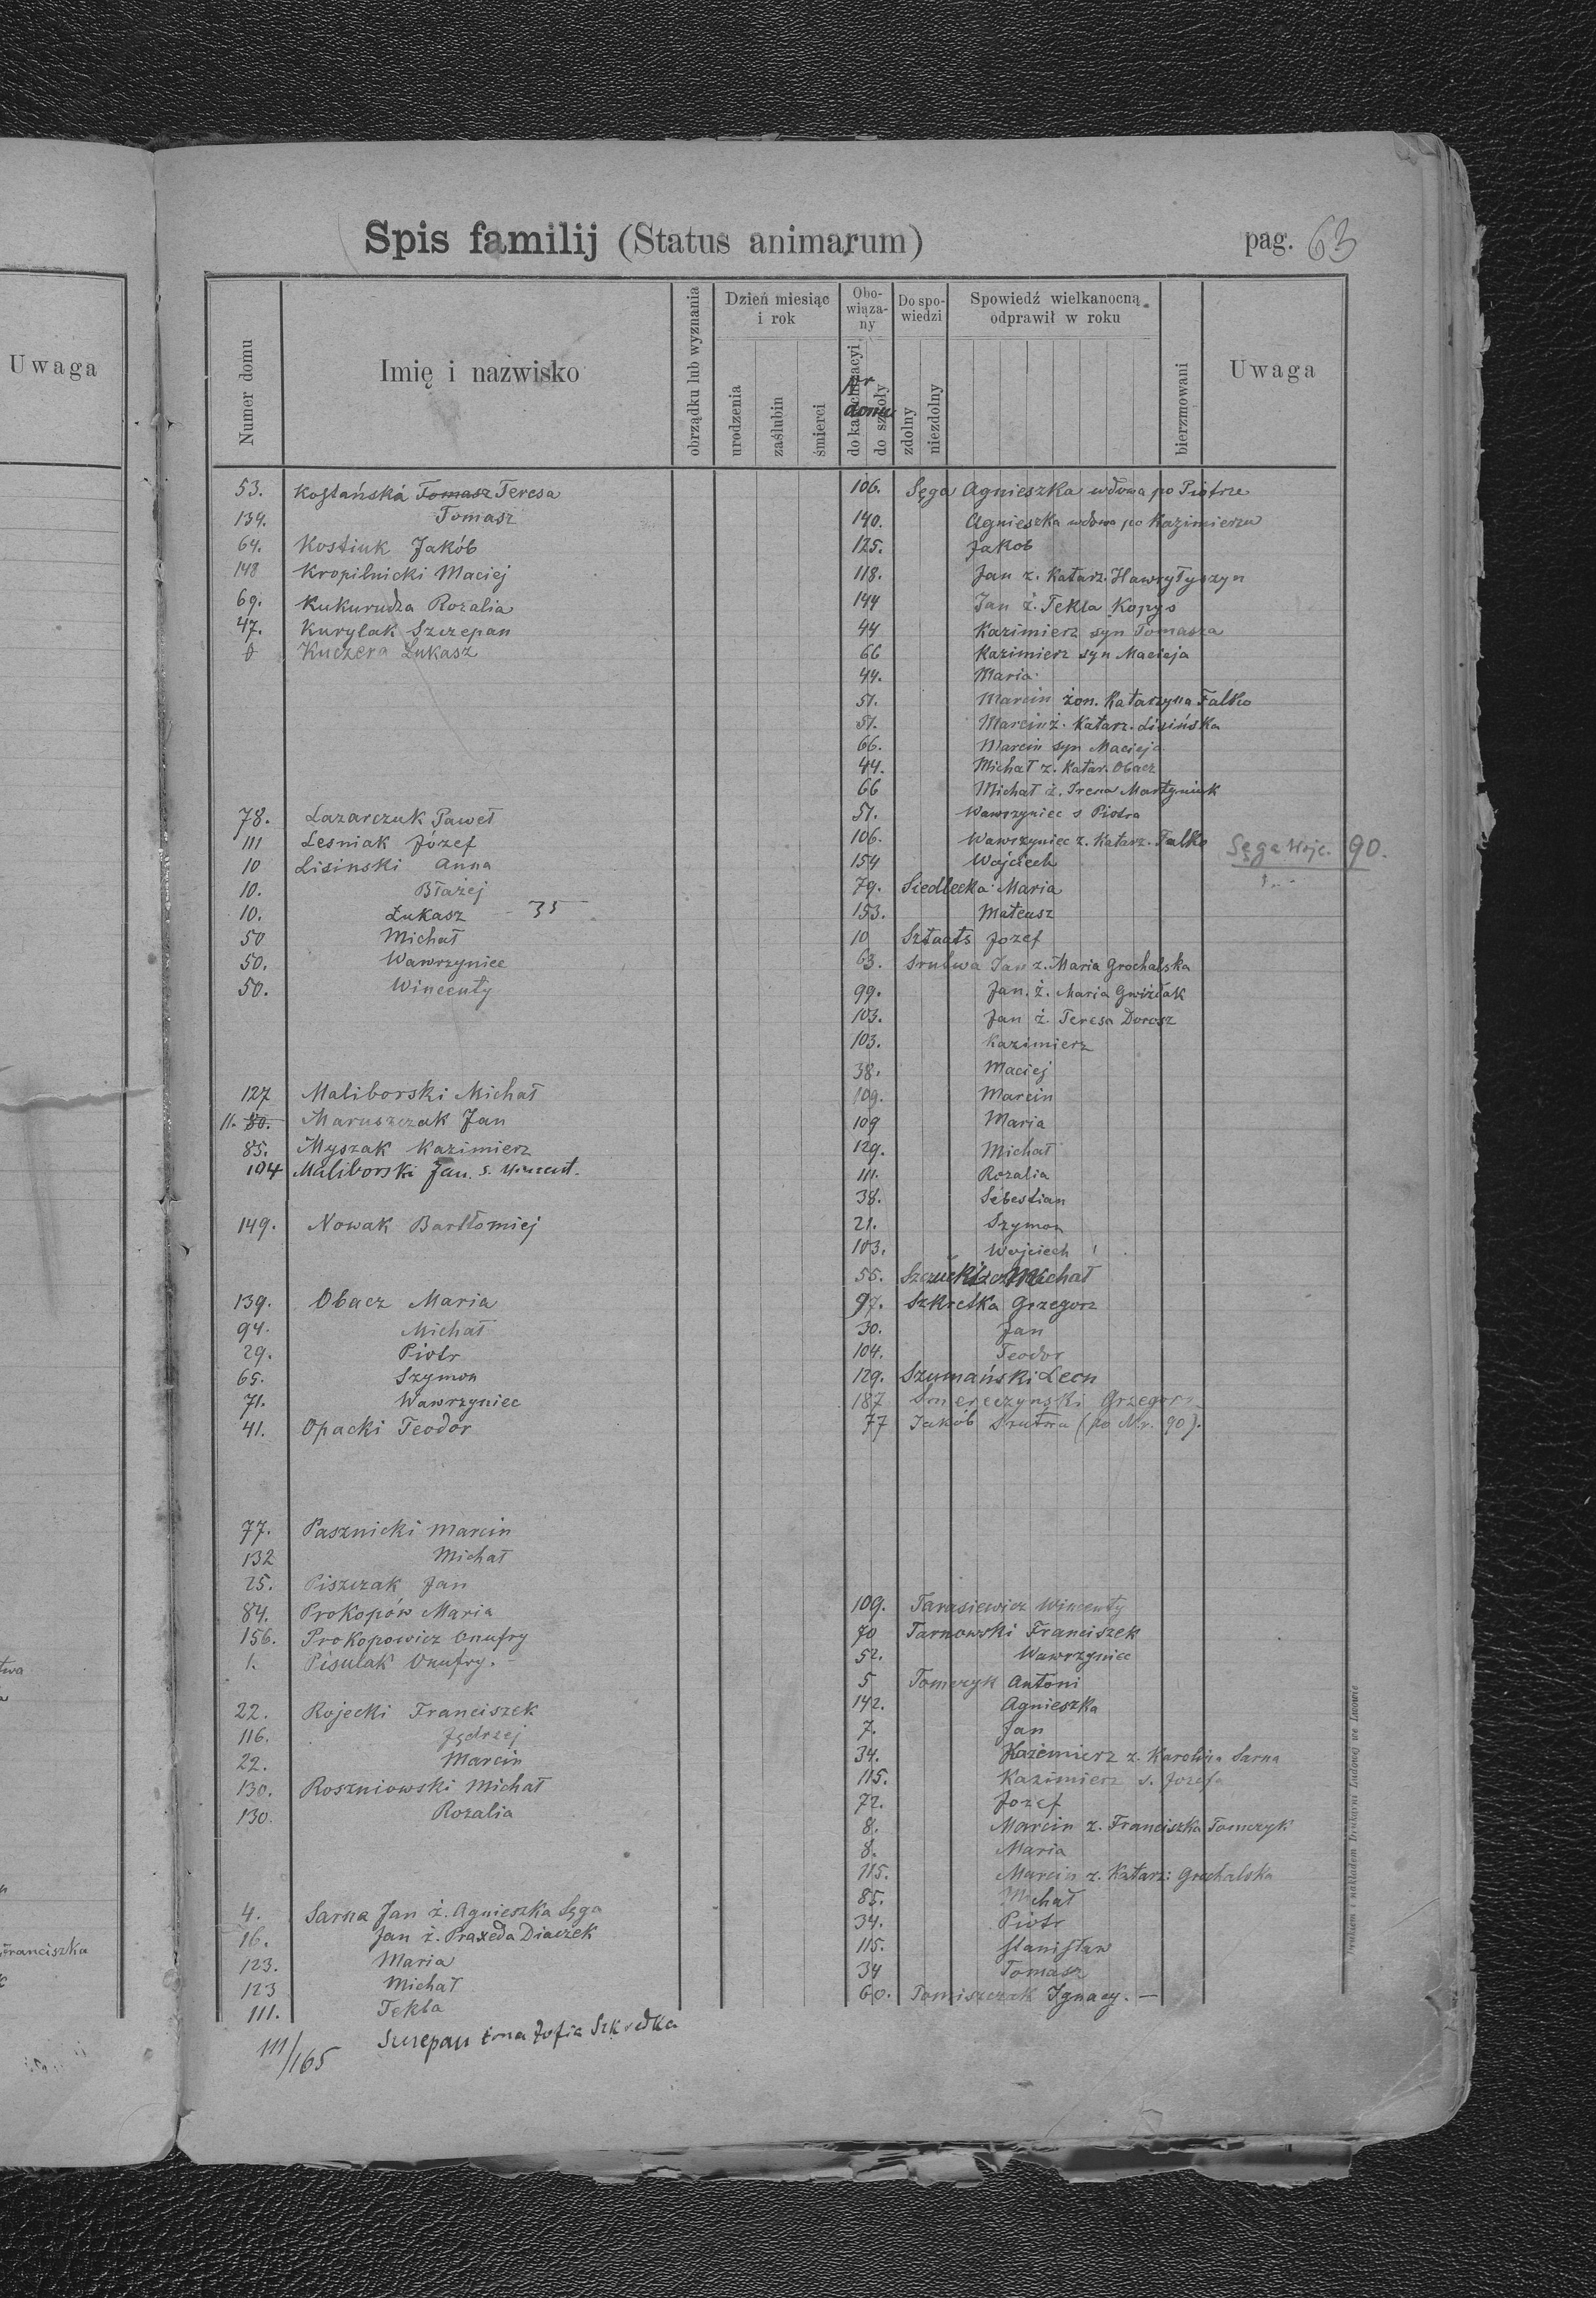 Spis familij (Status animarum)
pag. 63
Uwaga
Numer domu
Imię i nazwisko
obrządku lub wyznania
Dzień miesiąc i rok
urodzenia
zaślubin
śmierci
Obowiązany
do katechizacyi
do szkoły
Nr domu
Do spowiedzi
zdolny
niezdolny
Spowiedź wielkanocną odprawił w roku
bierzmowani
Uwaga
53. Kostańska Tomasz Teresa
134. Tomasz
64. Kostiuk Jakób
148 Kropilnicki Maciej
69. Kukurudza Rozalia
47. Kurylak Szczepan
Kuczera Łukasz
78. Łazarczuk Paweł
111 Lesniak Józef
10 Lisinski Anna
10. Błażej
10. Łukasz - 35
50 Michał
50. Wawrzyniec
50. Wincenty
127 Maliborski Michał
11. 80. Maruszczak Jan
85. Myszak Kazimierz
104 Maliborski Jan s. Wincent.
149. Nowak Bartłomiej
139. Obacz Maria
94. Michał
29. Piotr
65. Szymon
71. Wawrzyniec
41. Opacki Teodor
77. Pasznicki Marcin
132 Michał
25. Piszczak Jan
84. Prokopów Maria
156. Prokopowicz Onufry
1. Pisulak Onufry.
22. Rojecki Franciszek
116. Jędrzej
22. Marcin
130. Roszniowski Michał
130. Rozalia
4. Sarna Jan ż. Agnieszka Sęga
16. Jan ż. Praxeda Diaczek
123. Maria
123 Michał
111. Tekla
111/165 Szczepan żona Zofia Szkredka
106. Sęga Agnieszka wdowa po Piotrze
140. Agnieszka wdowa po Kazimierzu
125. Jakob
118. Jan ż. Katarz. Hawryłyszyn
144 Jan ż. Tekla Kopyo
44 Kazimierz syn Tomasza
66 Kazimierz syn Macieja
44. Maria
51. Marcin żon. Katarzyna Falko
51. Marcin ż. Katarz. Lisińska
66. Marcin syn Macieja
44. Michał ż. Katar. Obacz
66 Michał ż. Irena Martyniuk
51. Wawrzyniec s Piotra
106. Wawrzyniec ż. Katarz. Falko
Sęga Wojc. 90.
154 Wojciech
79. Siedlecka Maria
153. Mateusz
10 Sztaats Jozef
63. Srutwa Jan ż. Maria Grochalska
99. Jan. ż. Maria Gwiżdak
103. Jan ż. Teresa Dorosz
103. Kazimierz
38. Maciej
109. Marcin
109 Maria
129. Michał
111. Rozalia
38. Sebestian
21. Szymon
103. Wojciech
55. Michał
97. Szkretka Grzegorz
30. Jan
104. Teodor
129. Szumański Leon
187 Smereczynski Grzegorz
77 Jakób Srutwa (po Nr. 90).
109. Tarasiewicz Wincenty
70 Tarnowski Franciszek
52. Wawrzyniec
5 Tomczyk Antoni
142. Agnieszka
7. Jan
34. Kazimierz ż. Karolina Sarna
115. Kazimierz s. Jozefa
72. Jozef
8. Marcin ż. Franciszka Tomczyk
8. Maria
115. Marcin ż. Katarz: Grochalska
85. Michał
34. Piotr
115. Stanisław
34 Tomasz
60. Tomiszczak Ignacy. -
Franciszka
Drukiem i nakładem Drukarni Ludowej we Lwowie